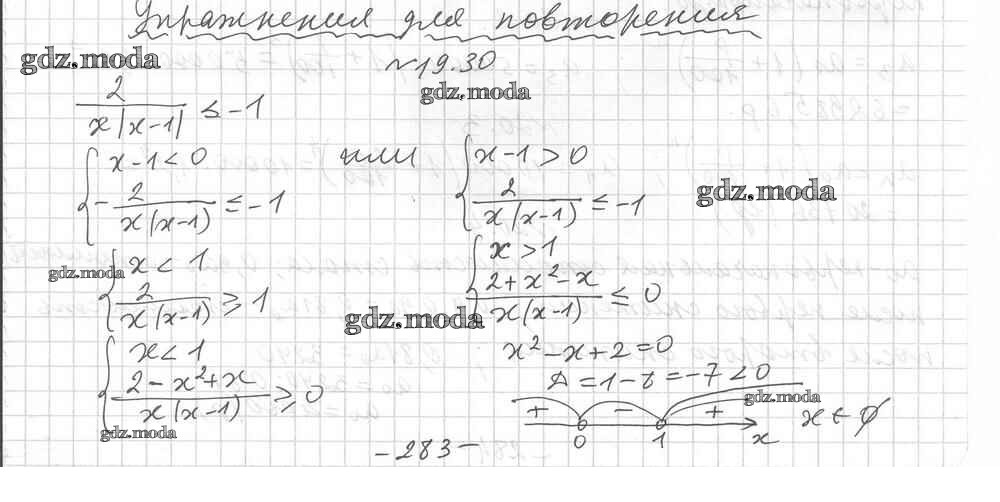 Упражнения для повторения
gdz.moda
№19.30
gdz.moda
2/(x|x-1|) ≤ -1
{ x-1<0
-2/(x(x-1)) ≤ -1
или
{ x-1>0
2/(x(x-1)) ≤ -1
gdz.moda
gdz.moda
{ x<1
2/(x(x-1)) ≥ 1
{ x>1
(2+x²-x)/(x(x-1)) ≤ 0
gdz.moda
{ x<1
(2-x²+x)/(x(x-1)) ≥ 0
gdz.moda
x²-x+2=0
Δ=1-8=-7<0
gdz.moda
+ - +
0 1 x
x∈∅
-283-